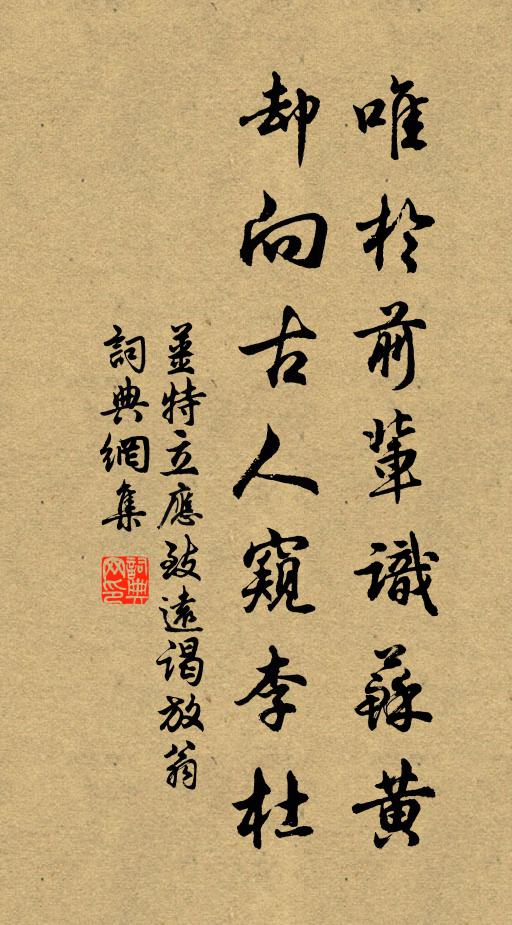 唯於前輩識蘇黃
却向古人窺李杜
姜特立應致遠謁放翁
詞典網集
詞典網印